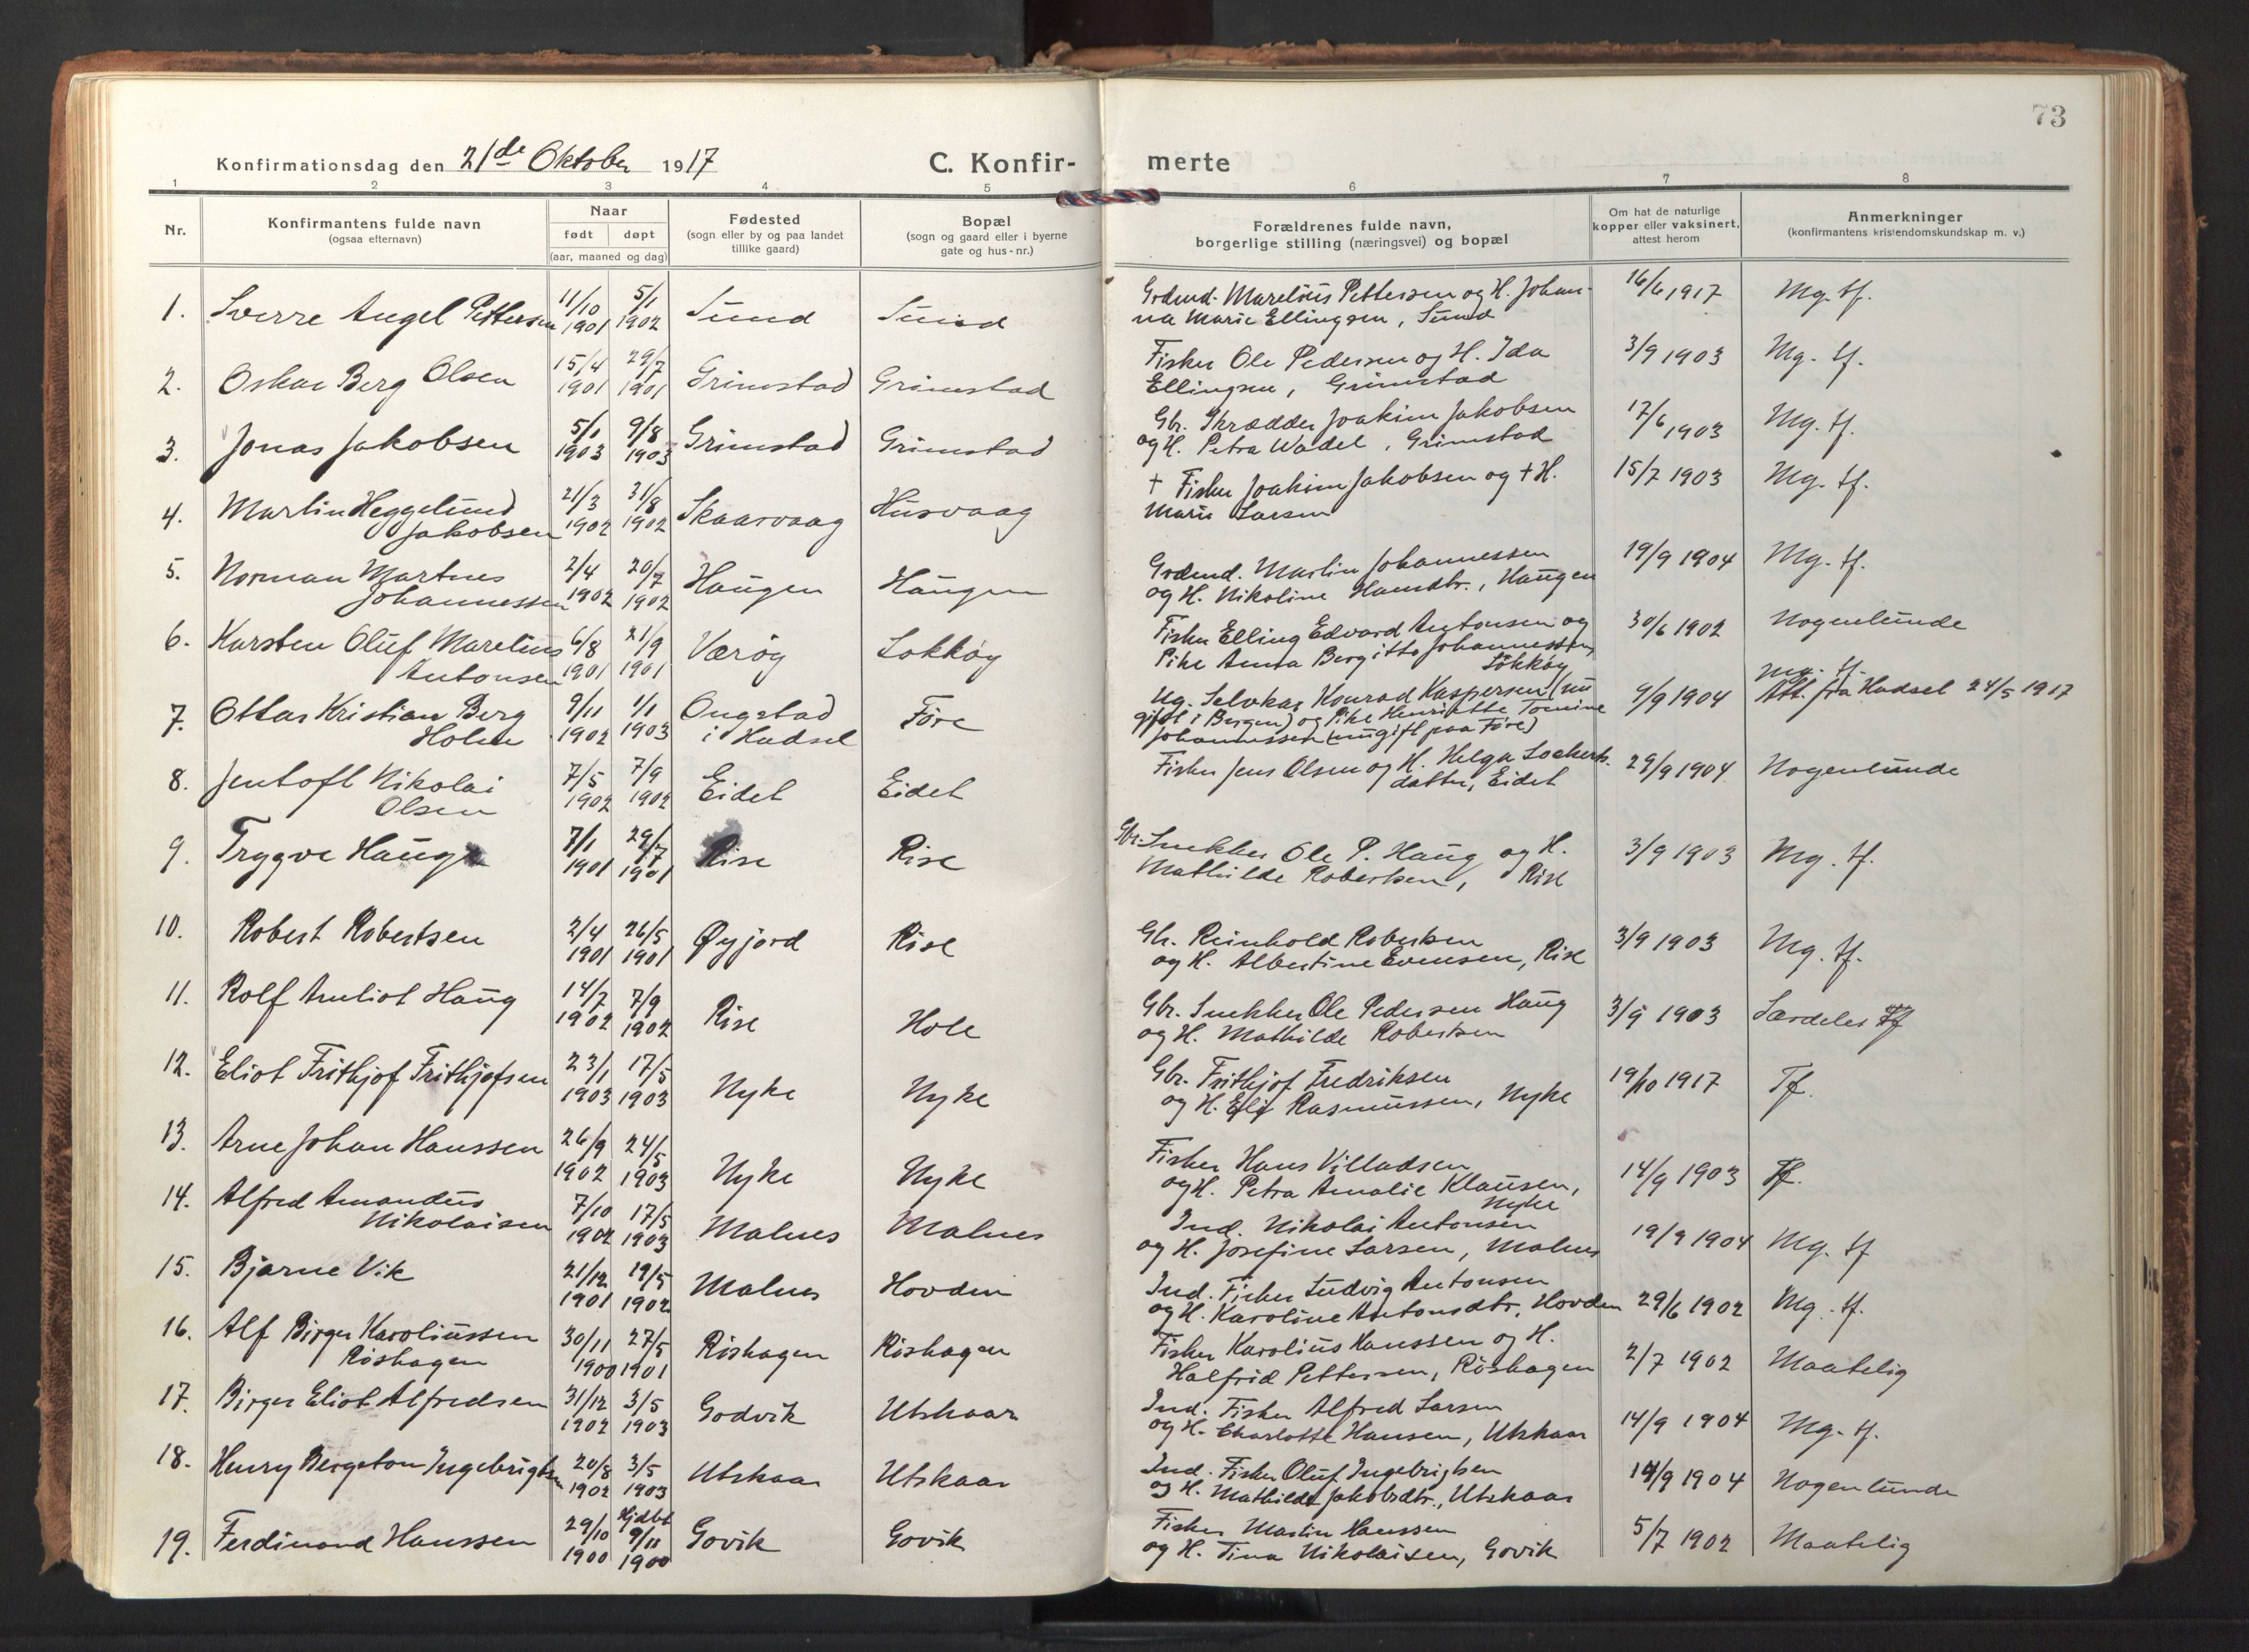 73
Konfirmationsdag den 21de Oktober 1917 C. Konfir- merte
1 2 3 4 5 6 7 8
Nr. Konfirmantens fulde navn (ogsaa efternavn) Naar født døpt (aar, maaned og dag) Fødested (sogn eller by og paa landet tillike gaard) Bopæl (sogn og gaard eller i byerne gate og hus-nr.) Forældrenes fulde navn, borgerlige stilling (næringsvei) og bopæl Om hat de naturlige kopper eller vaksinert, attest herom Anmerkninger (konfirmantens kristendomskundskap m. v.)
1. Sverre Angel Pettersen 11/10 1901 5/1 1902 Sund Sund Grdmd. Marelius Pettersen og H. Johan- 16/6 1917 Mg. tf.
na Marie Ellingsen, Sund
2. Oskar Berg Olsen 15/4 1901 29/7 1901 Grimstad Grimstad Fisker Ole Pedersen og H. Ida 3/9 1903 Mg. tf.
Ellingsen, Grimstad
3. Jonas Jakobsen 5/1 1903 9/8 1903 Grimstad Grimstad Gbr. Skrædder Joakim Jakobsen 17/6 1903 Mg. tf.
og H. Petra Wadel, Grimstad
4. Martin Heggelund 21/3 1902 31/8 1902 Skaarvaag Husvaag † Fisker Joakim Jakobsen og † H. 15/7 1903 Mg. tf.
Jakobsen Marie Larsen
5. Norman Martnes 2/4 1902 20/7 1902 Haugen Haugen Grdmd. Martin Johannessen 19/9 1904 Mg. tf.
Johannessen og H. Nikoline Hansdtr., Haugen
6. Karsten Oluf Marelius 6/8 1901 21/9 1901 Værøy Lokkøy Fisker Elling Edvard Antonsen og 30/6 1902 Nogenlunde
Antonsen Pike Anna Bergitte Johannessen, Lokkøy
7. Ottar Kristian Berg 9/11 1902 1/1 1903 Ongstad Føre Ug. Konrad Kaspersen (nu 9/9 1904 Mg. tf.
Holm i Hadsel gift i Bergen) og Pike Henriette Tomine Att. fra Hadsel 24/5 1917
Johannessen (ugift paa Føre)
8. Jentoft Nikolai 7/5 1902 7/9 1902 Eidet Eidet Fisker Jens Olsen og H. Helga Lockerts- 29/9 1904 Nogenlunde
Olsen datter, Eidet
9. Trygve Haug 7/1 1901 29/7 1901 Rise Rise Gbr. Snekker Ole P. Haug og H. 3/9 1903 Mg. tf.
Mathilde Robertsen, Rise
10. Robert Robertsen 2/4 1901 26/5 1901 Øyjord Rise Gbr. Reinhold Robertsen 3/9 1903 Mg. tf.
og H. Albertine Evensen, Rise
11. Rolf Arnliot Haug 14/7 1902 7/9 1902 Rise Hole Gbr. Snekker Ole Pedersen Haug 3/9 1903 Særdeles tf
og H. Mathilde Robertsen
12. Eliot Frithjof Frithjofsen 23/1 1903 17/5 1903 Nyke Nyke Gbr. Frithjof Fredriksen 19/10 1917 Tf.
og H. Eli Rasmussen, Nyke
13. Arne Johan Hanssen 26/9 1902 24/5 1903 Nyke Nyke Fisker Hans Villadsen 14/9 1903 Tf.
og H. Petra Amalie Klausen, Nyke
14. Alfred Amandus 7/10 1902 17/5 1903 Malnes Malnes Ind. Nikolai Antonsen 19/9 1904 Mg. tf
Nikolaisen og H. Josefine Larsen, Malnes
15. Bjarne Vik 21/12 1901 19/5 1902 Malnes Hovden Ind. Fisker Ludvig Antonsen 29/6 1902 Mg. tf.
og H. Karoline Antonsdtr, Hovden
16. Alf Birger Karoliussen 30/11 1900 27/5 1901 Røshagen Røshagen Fisker Karolius Hanssen og H. 2/7 1902 Maatelig
Røshagen Halfrid Pettersen, Røshagen
17. Birger Eliot Alfredsen 31/12 1902 3/5 1903 Godvik Utskaar Ind. Fisker Alfred Larsen 14/9 1904 Mg. tf.
og H. Charlotte Hansen, Utskaar
18. Henry Bergeton Ingebrigtsen 20/8 1902 3/5 1903 Utskaar Utskaar Ind. Fisker Oluf Ingebrigtsen 14/9 1904 Nogenlunde
og H. Mathilde Jakobsdtr., Utskaar
19. Ferdinand Hanssen 29/10 1900 Hjdbt 9/11 1900 Govik Govik Fisker Martin Hanssen 5/7 1902 Maatelig
og H. Tina Nikolaisen, Govik